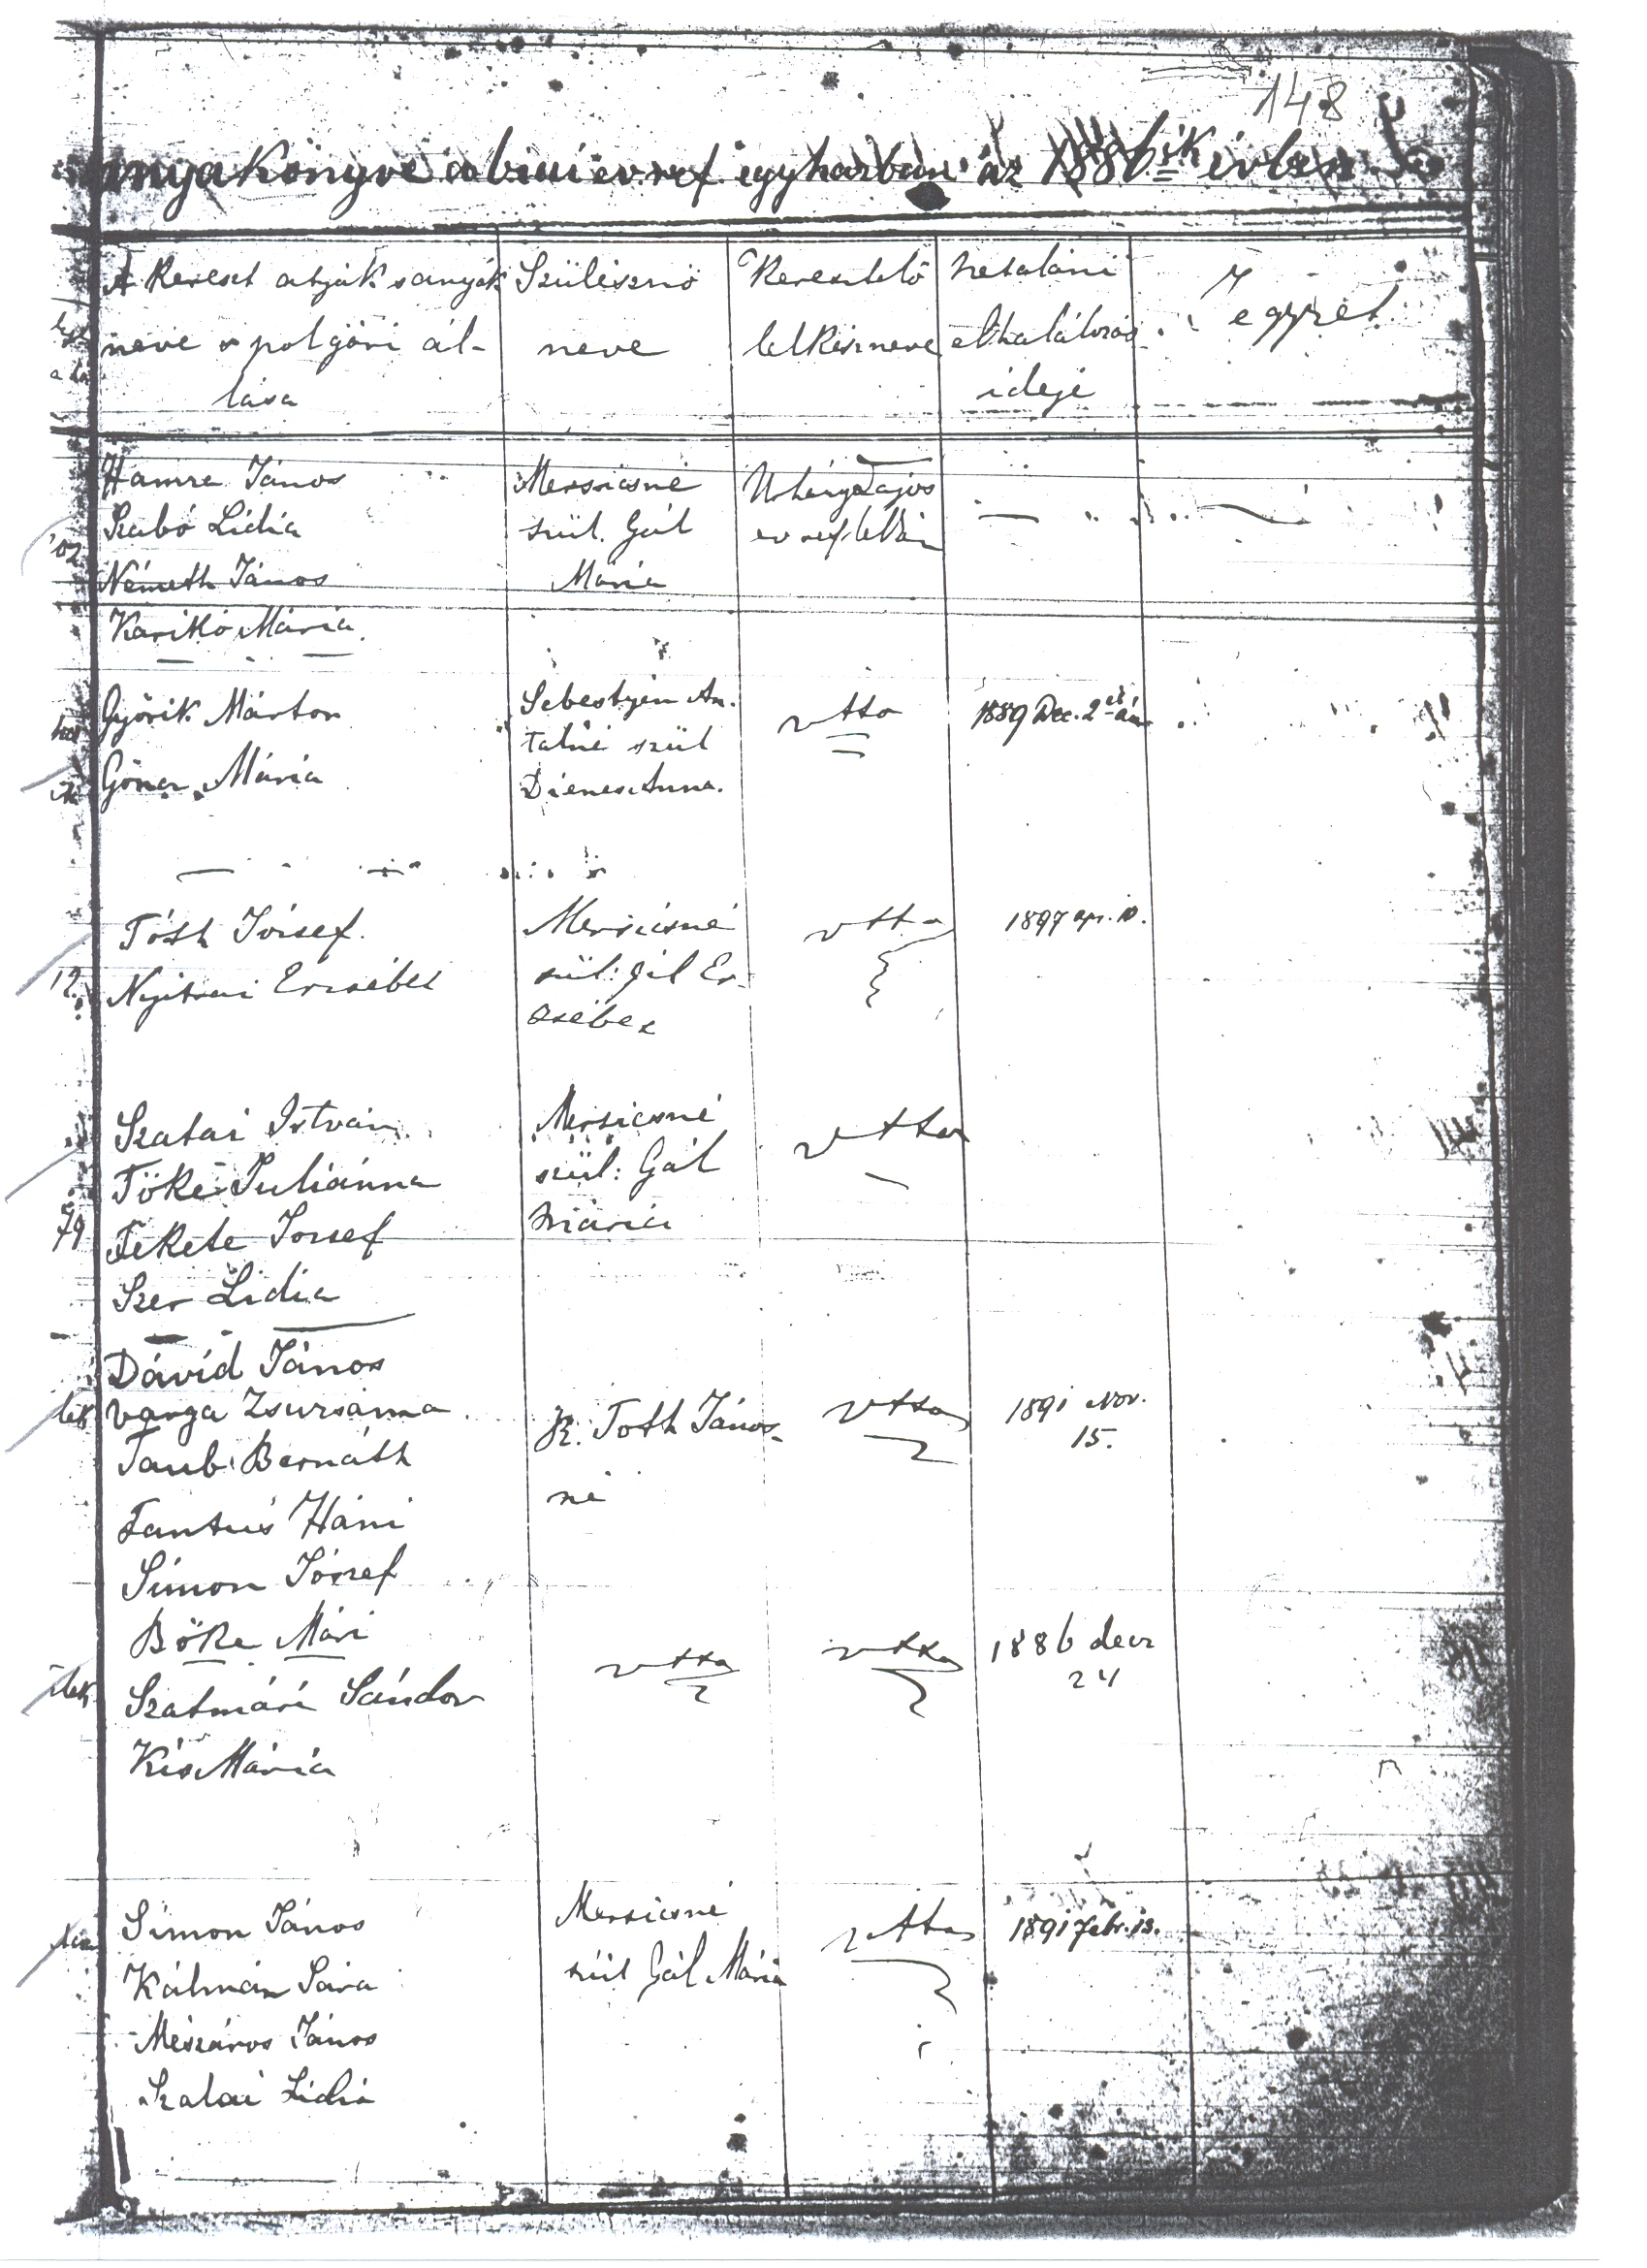 148
anyakönyve a biai ev. ref. egyházban az 1886ik évben
A kereszt atyák s anyák
neve s polgári ál-
lása
Szülésznő
neve
Keresztelő
lelkész neve
netaláni
elhalálozás
ideje
Jegyzet
Hamza János
Szabó Lidia
Németh János
Karikó Mária
Mersicsné
szül. Gál
Mária
Lajos
ev ref. lelkész
Győrik Márton
Mária
Sebestyén An-
talné szül
Dienes Anna.
v tto
1889 Dec. 2
Tóth József.
12.
Nyitrai Erzsébet
Mersicsné
szül: Gál Er-
zsébet
v tto
1897 apr. 10.
Szalai István
Tőke Juliánna
79
Fekete József
Szer Lidia
Mersicsné
szül: Gál
Mária
v tto
Dávid János
Varga Zsuzsánna
Taub Bernáth
Háni
K. Toth János-
né
v tto
1891 Nov.
15.
Simon József
Bőke Mári
Szatmári Sándor
Kis Mária
v tto
v tto
1886 decz
24
Simon János
Kálmán Sára
Mészáros János
Szalai Lidia
Mersicsné
szül Gál Mária
v tto
1891 febr. 13.